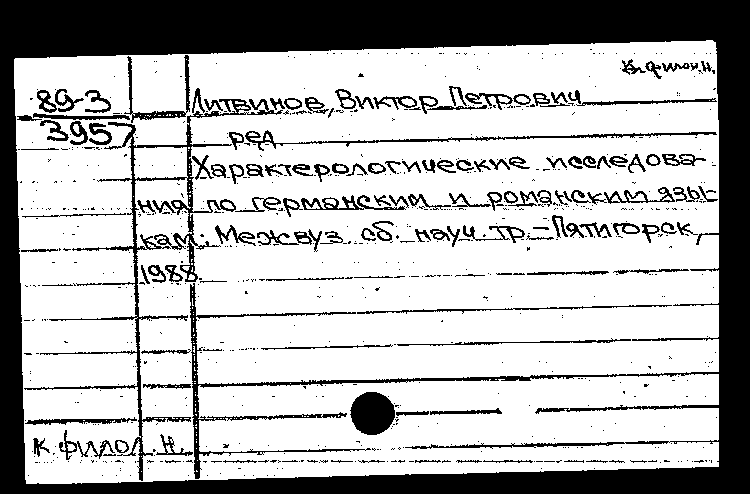 к. филол. н.
89-3
3957
Литвинов, Виктор Петрович
ред.
Характерологические исследова-
ния по германским и романским язы-
кам: Межвуз. сб. науч. тр. - Пятигорск,
1988.
к. филол. н.